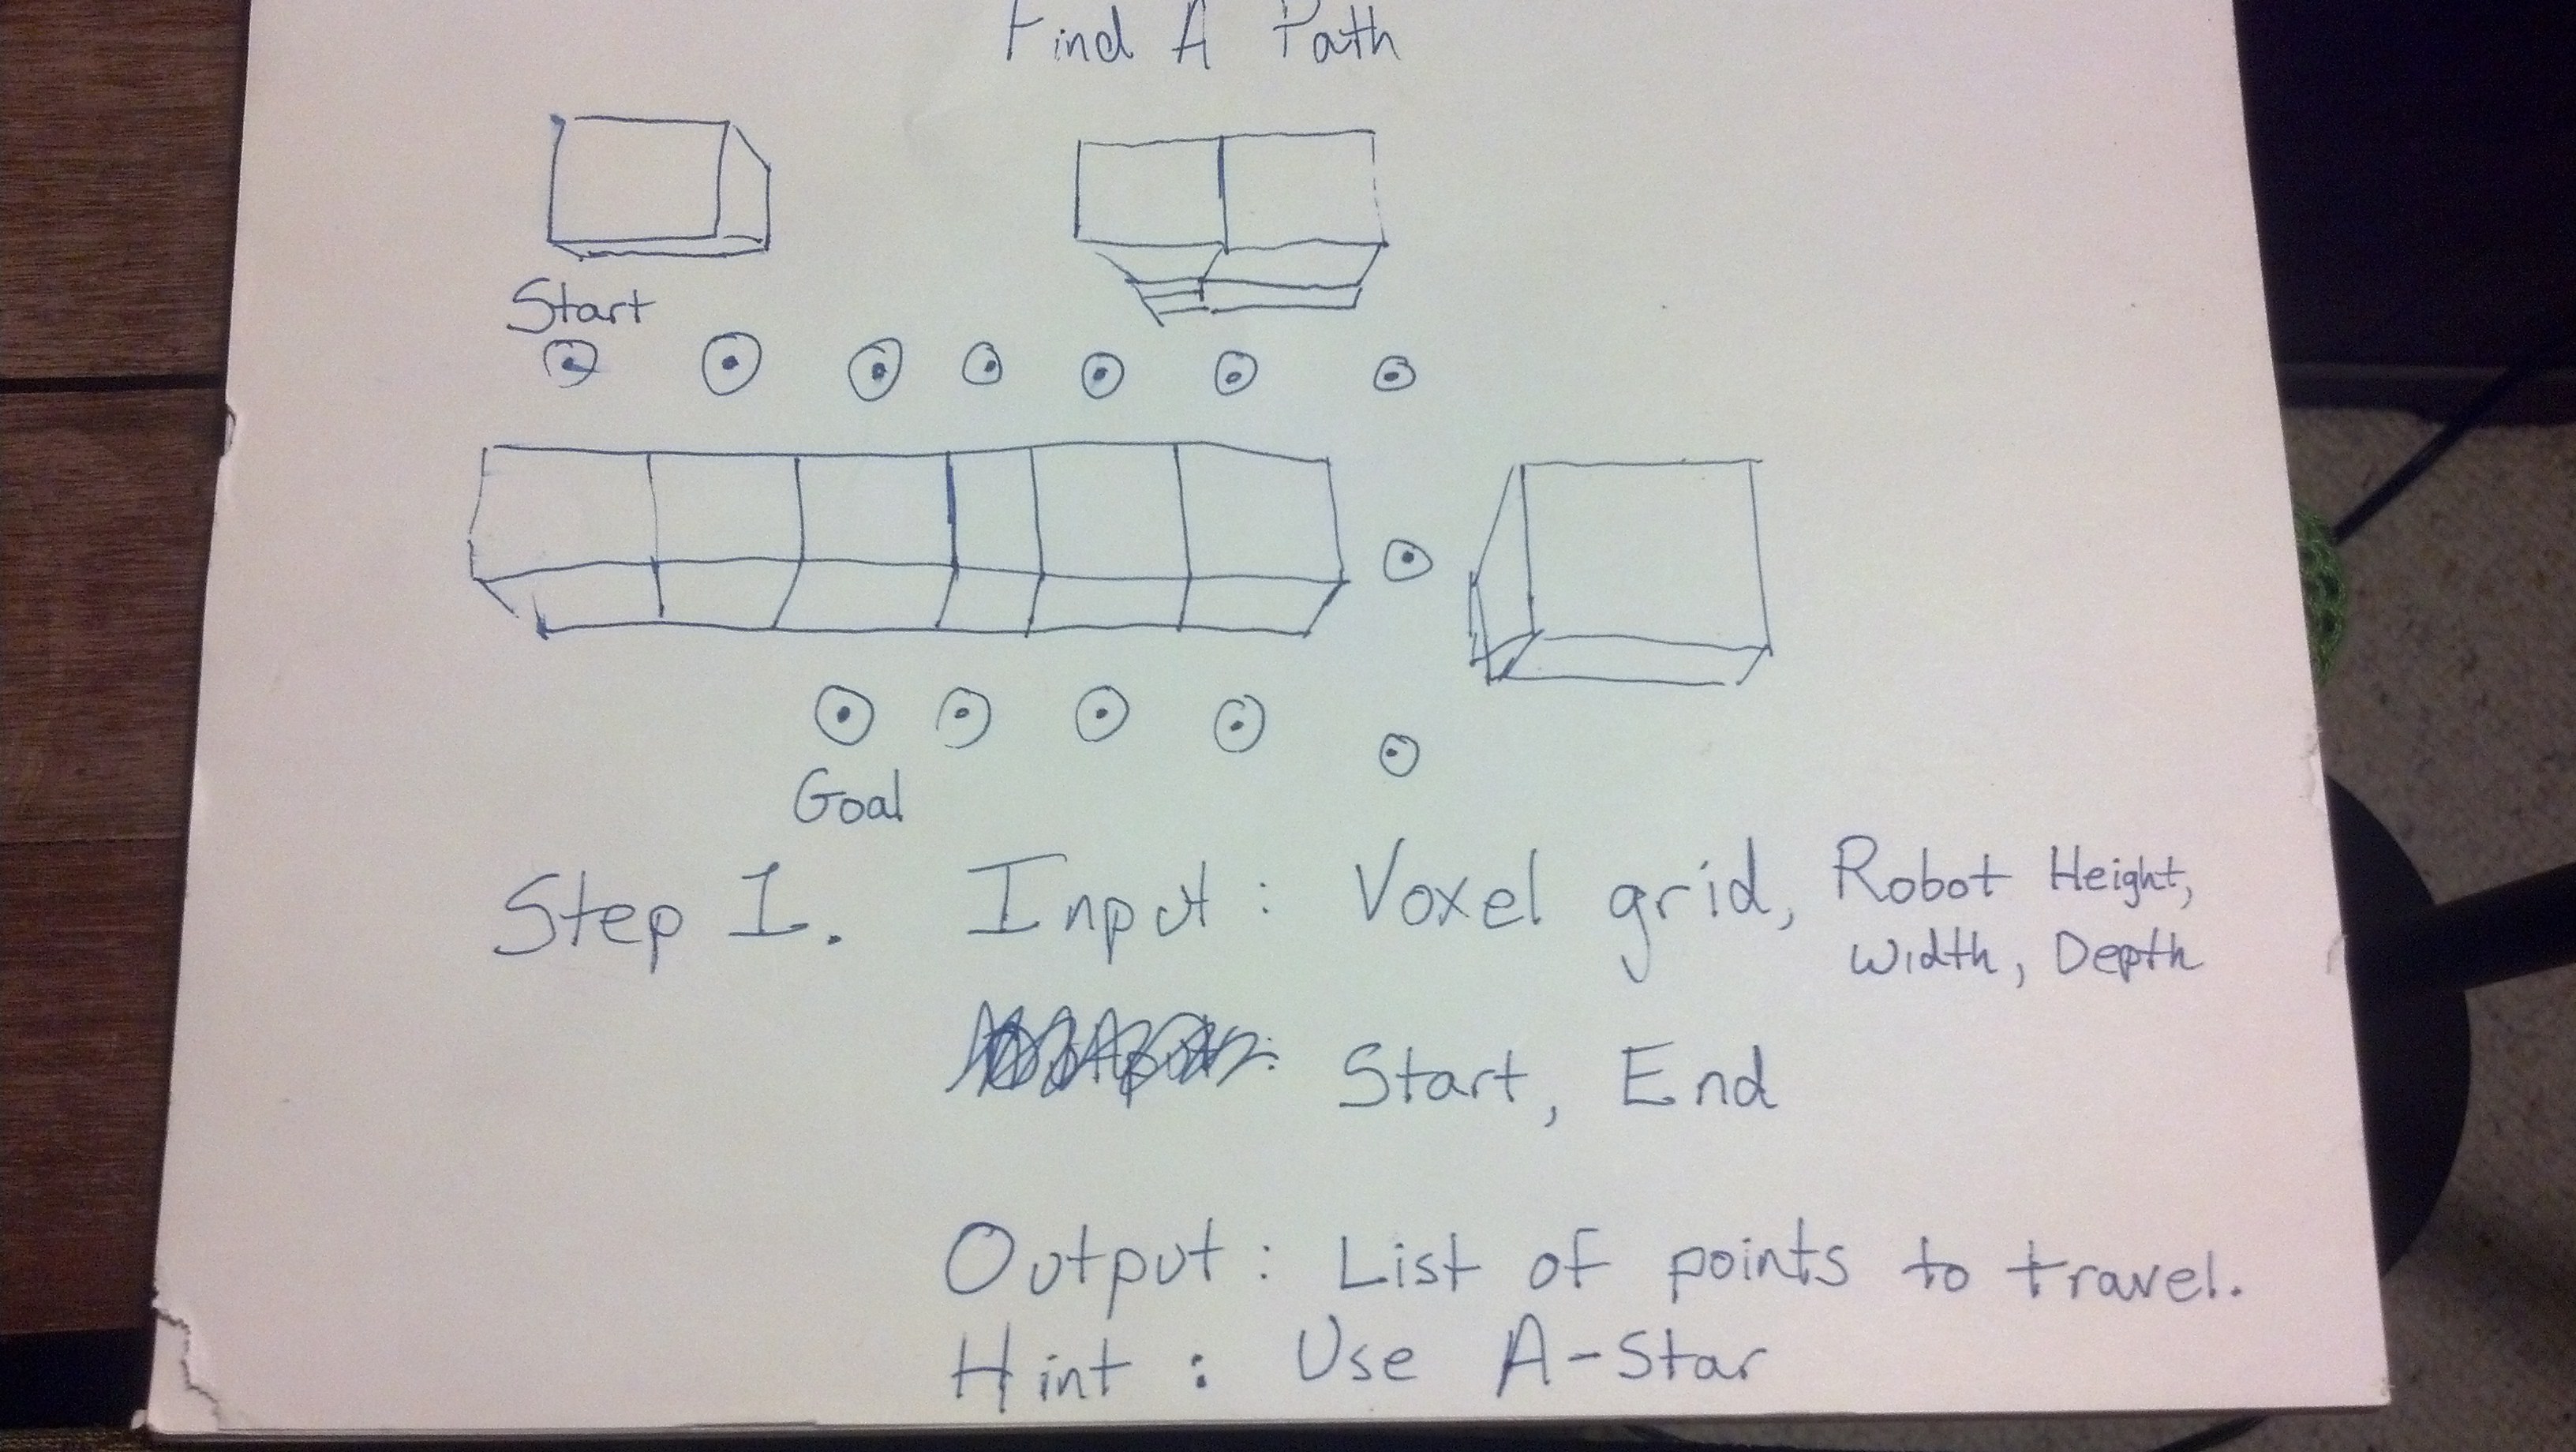 Find A Path
Start
Goal
Step 1. Input: Voxel grid, Robot Height,
Width, Depth
Start, End
Output: List of points to travel.
Hint: Use A-Star